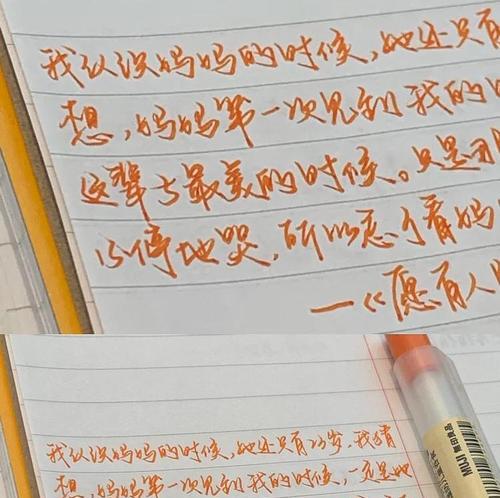 我认识妈妈的时候，她还只有
想，妈妈第一次见到我的
这辈子最美的时候。只是我
停地哭，所以忘了看妈
—《愿有人
我认识妈妈的时候，她还只有23岁，我猜
想，妈妈第一次见到我的时候，一定是她
MUJI 無印良品